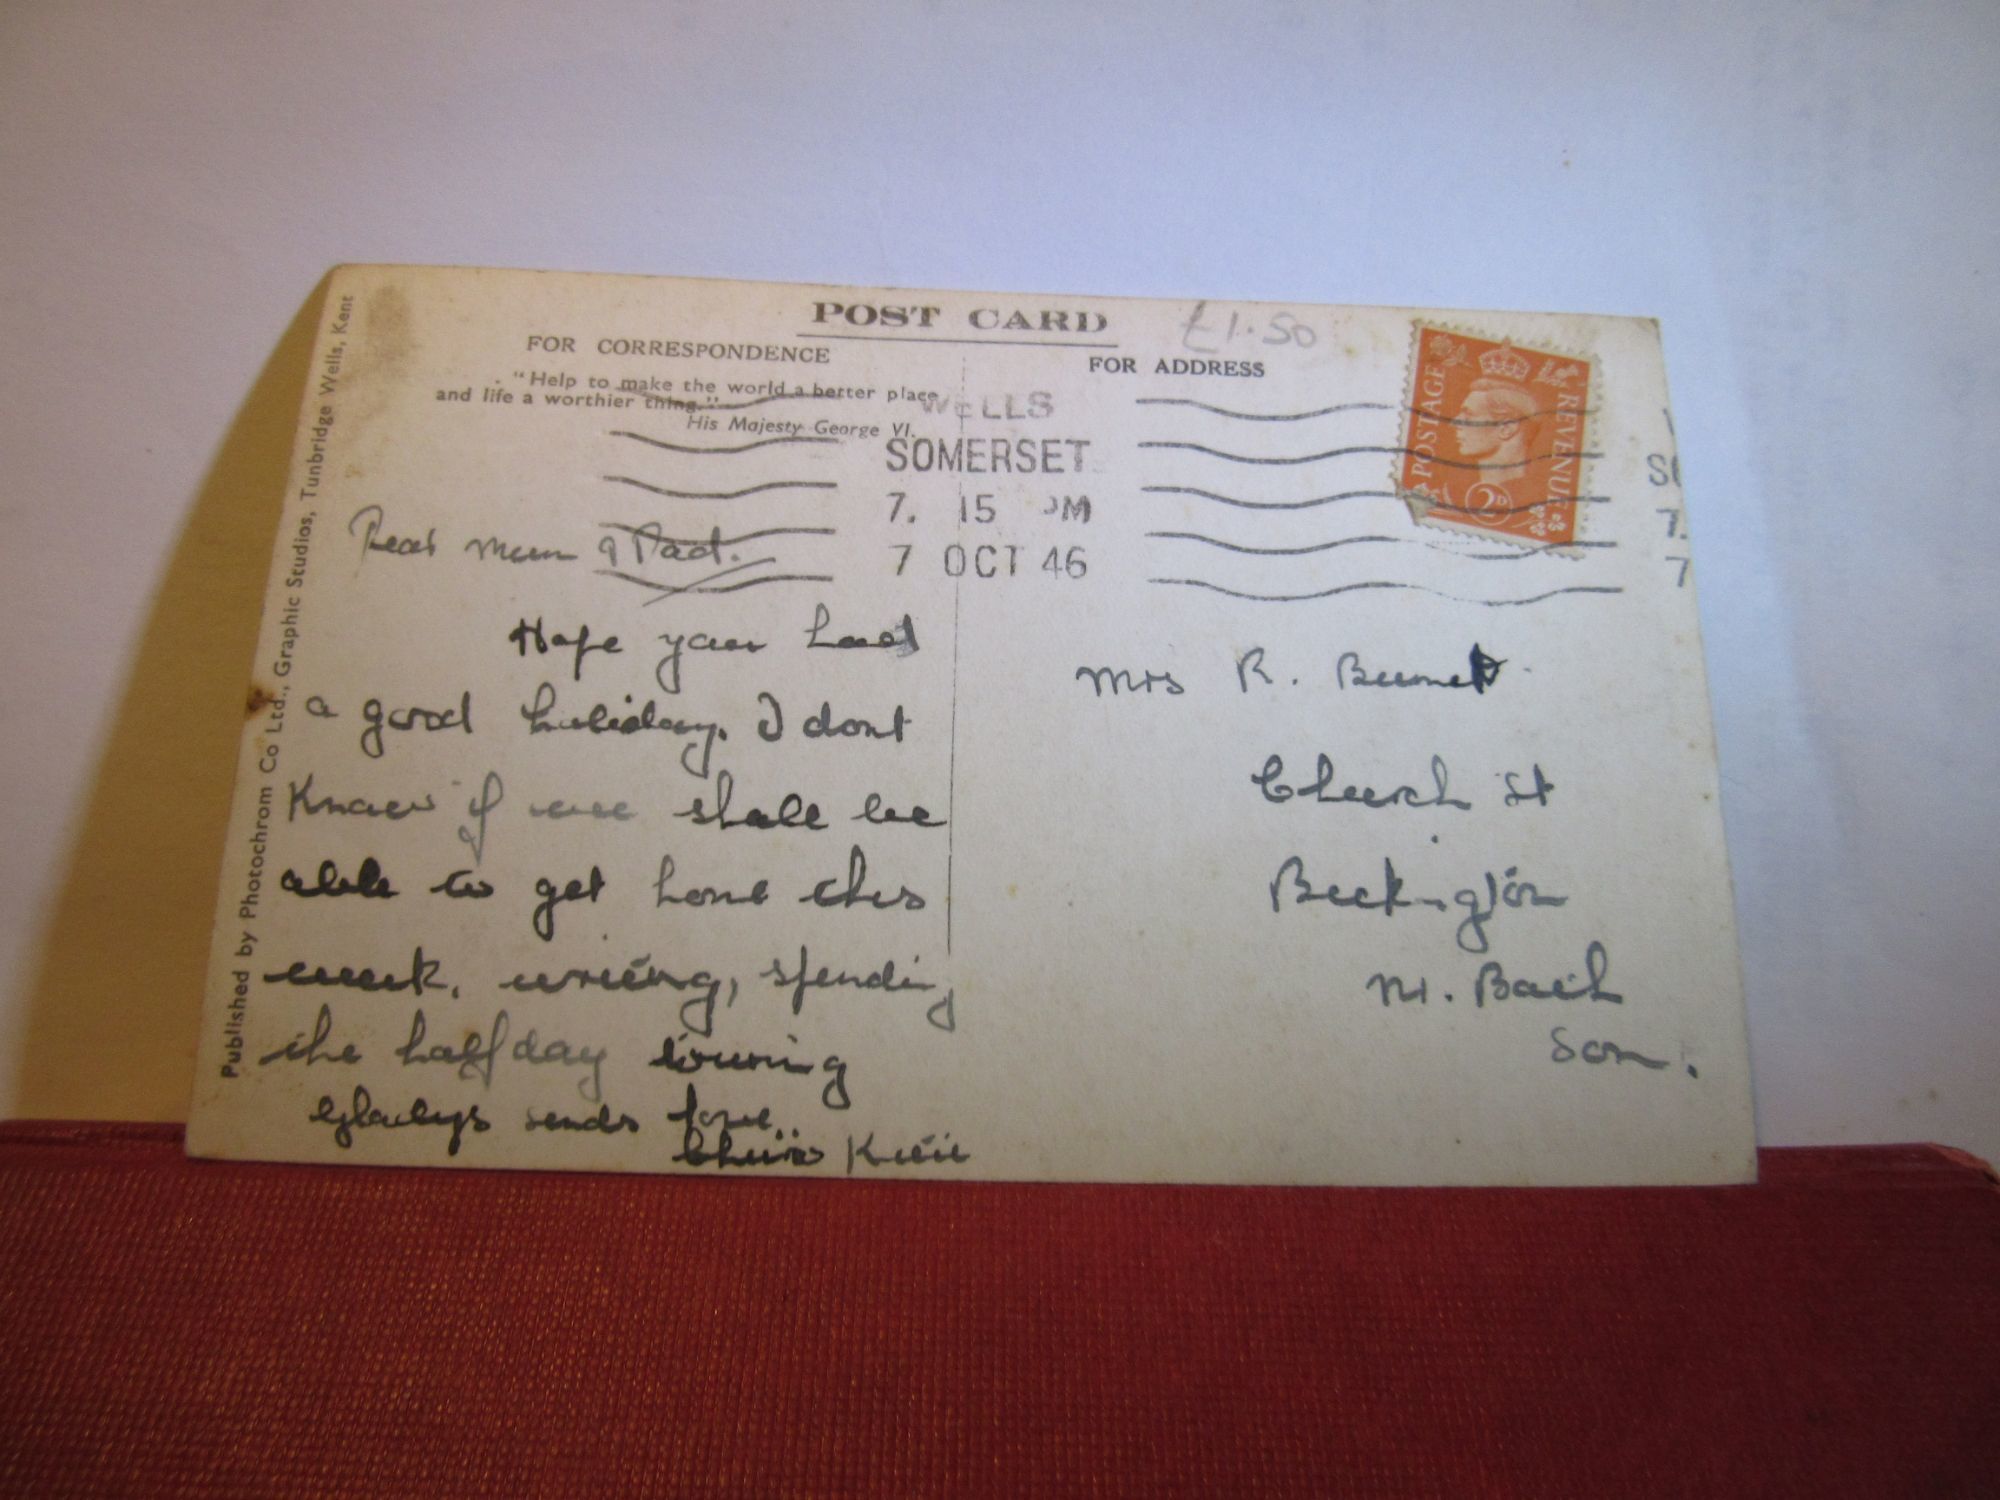 POST CARD
£1.50
FOR CORRESPONDENCE
FOR ADDRESS
"Help to make the world a better place
and life a worthier thing."
His Majesty George VI.
WELLS
SOMERSET
7. 15 PM
7 OCT 46
POSTAGE REVENUE
2D
Dear Mum & Dad.
Hope you had
a good holiday. I dont
Know if we shall be
able to get home this
week, wring, spending
the half day
Gladys sends love.
Mrs R.
Church St
Beckington
Nr. Bath
Som.
Published by Photochrom Co Ltd., Graphic Studios, Tunbridge Wells, Kent